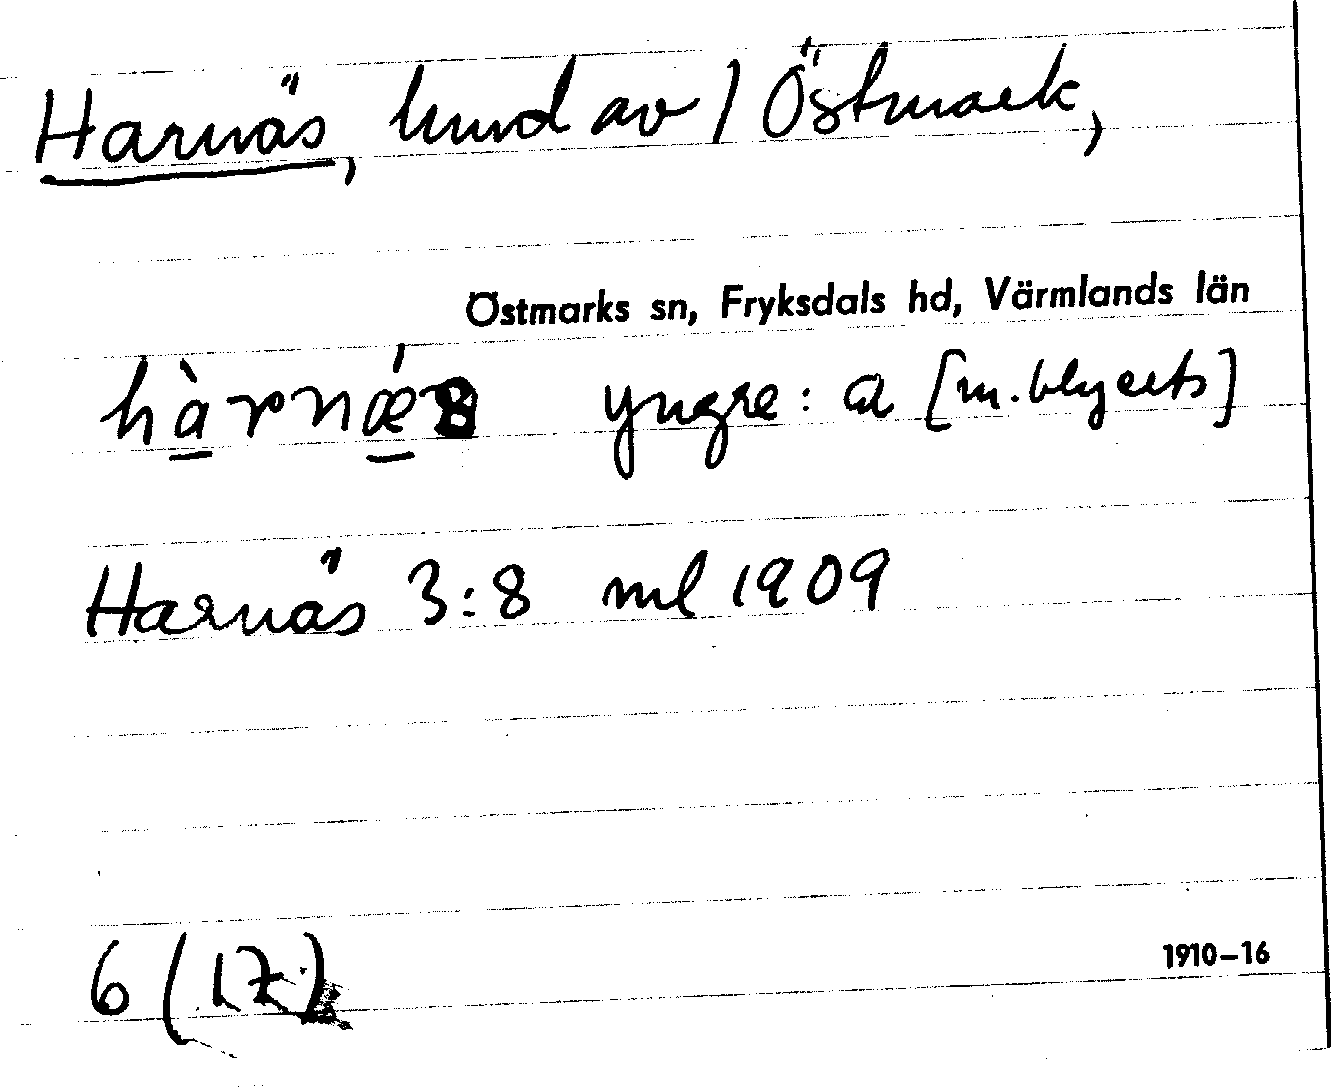 Harnäs, hmd av 1 Östmark,
Östmarks sn, Fryksdals hd, Värmlands län
hàrnǽs yngre: a [m. blyerts]
Harnäs 3:8 ml 1909
6 (17)
1910–16